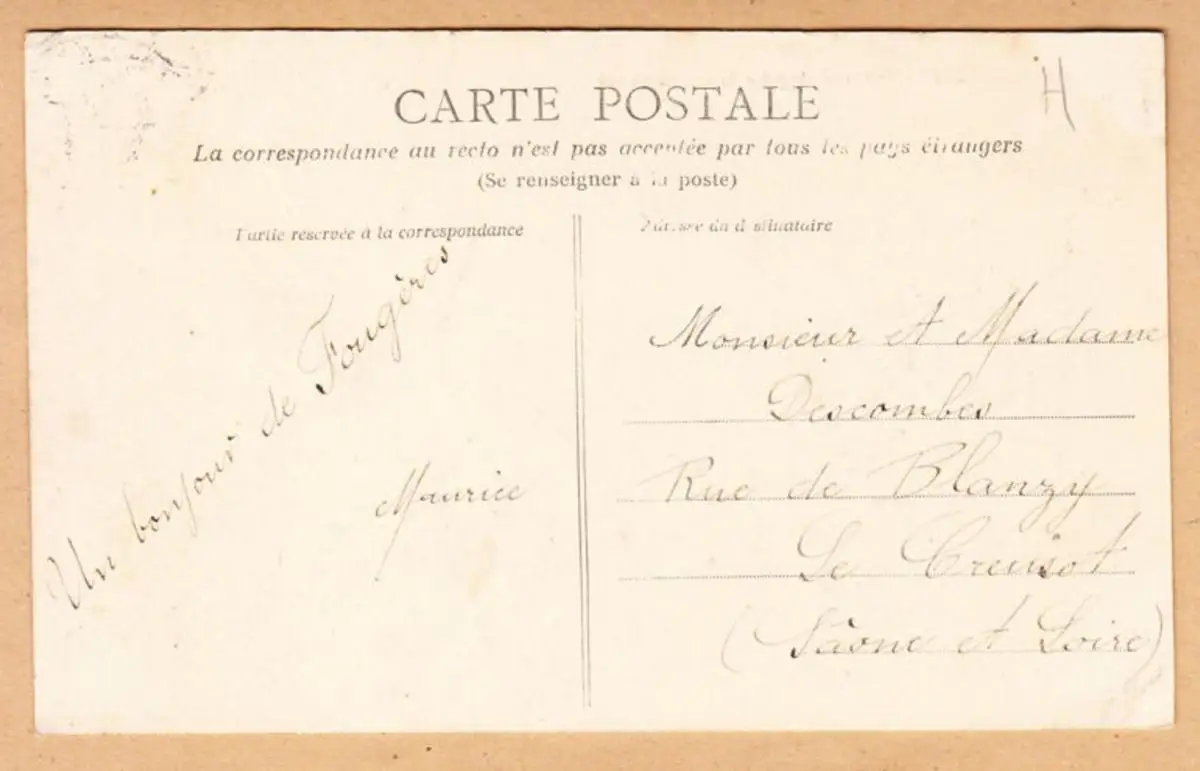 H
CARTE POSTALE
La correspondance au recto n'est pas acceptée par tous les pays étrangers
(Se renseigner à la poste)
Partie réservée à la correspondance
Adresse du destinataire
Un bonjour de Fougères
Maurice
Monsieur et Madame
Descombes
Rue de Blanzy
Le Creusot
(Sâone et Loire)